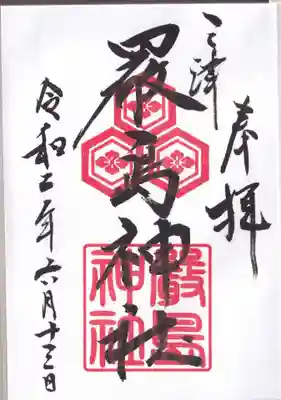 奉拝
三津
嚴島神社
令和二年六月十三日
嚴島
神社